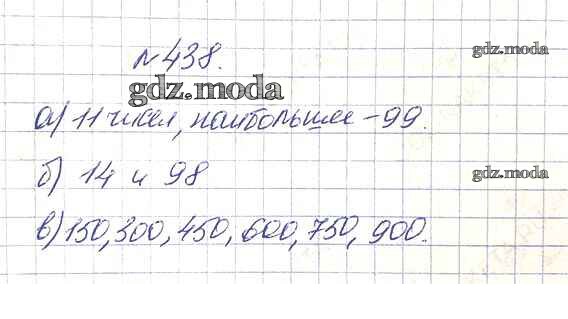 №438.
gdz.moda
gdz.moda
а) 11 чисел, наибольшее – 99.
б) 14 и 98
gdz.moda
в) 150, 300, 450, 600, 750, 900.